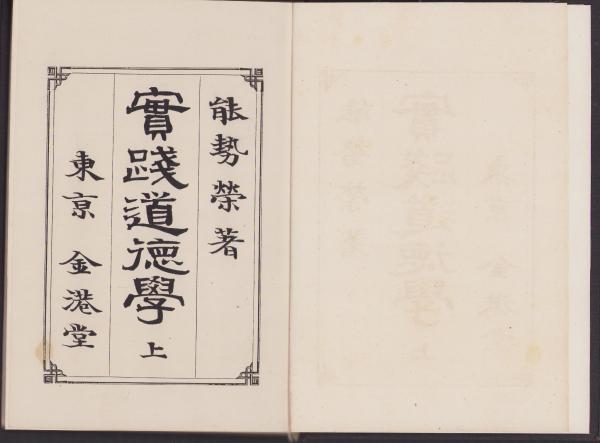 能勢榮著
實踐道德學 上
東亰 金港堂